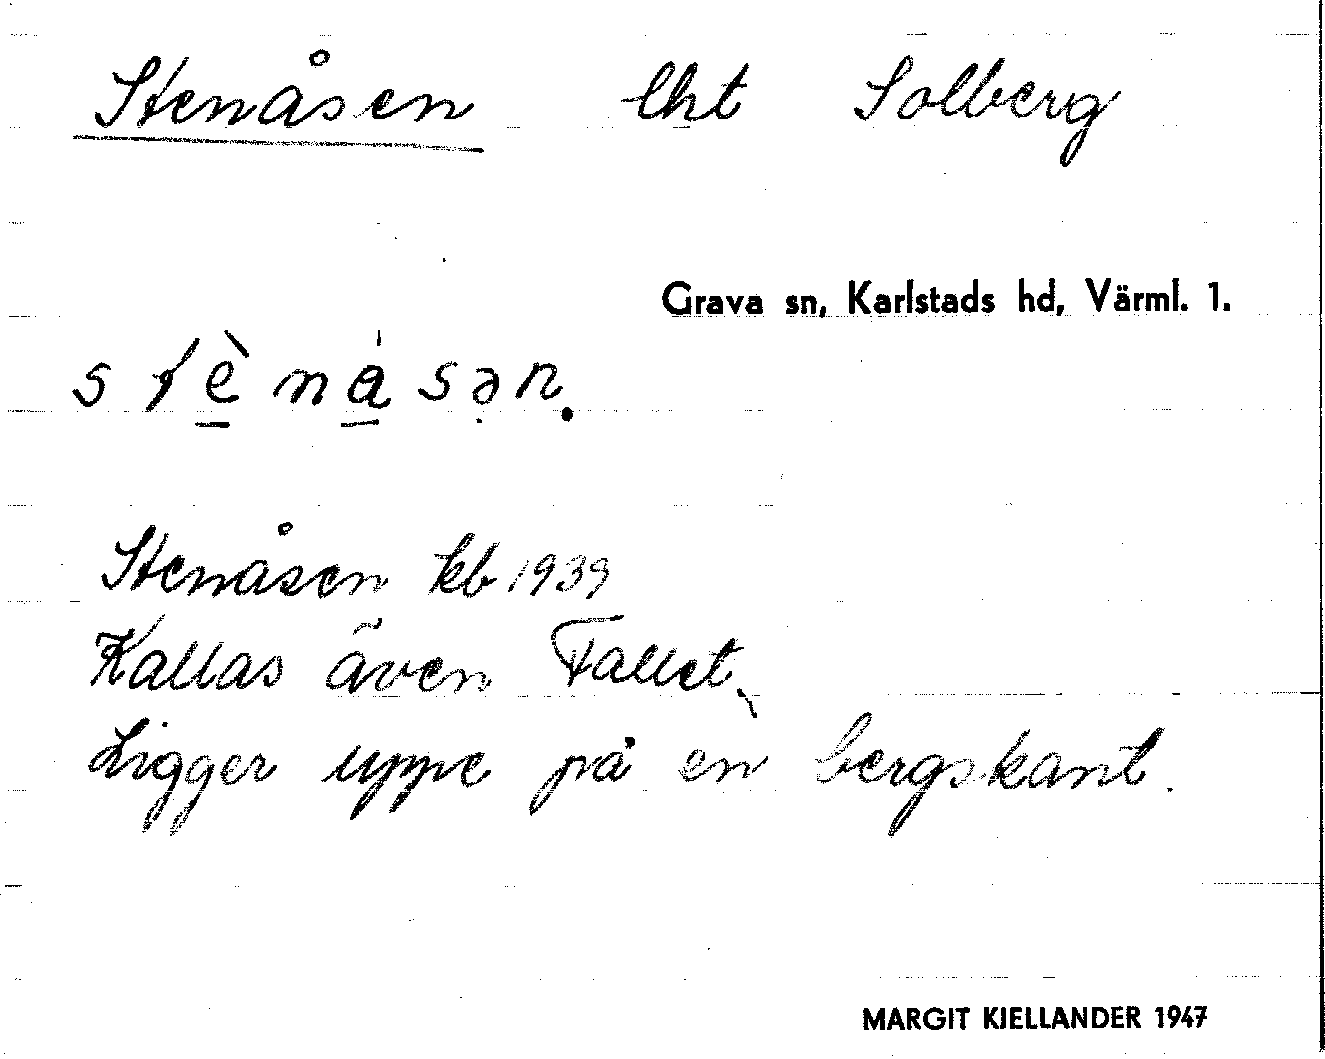 Stenåsen lht Solberg
Grava sn, Karlstads hd, Värml. 1.
stè̠na̠̍sən.
Stenåsen kb 1939
Kallas även Fallet.
Ligger uppe på en bergskant.
MARGIT KJELLANDER 1947